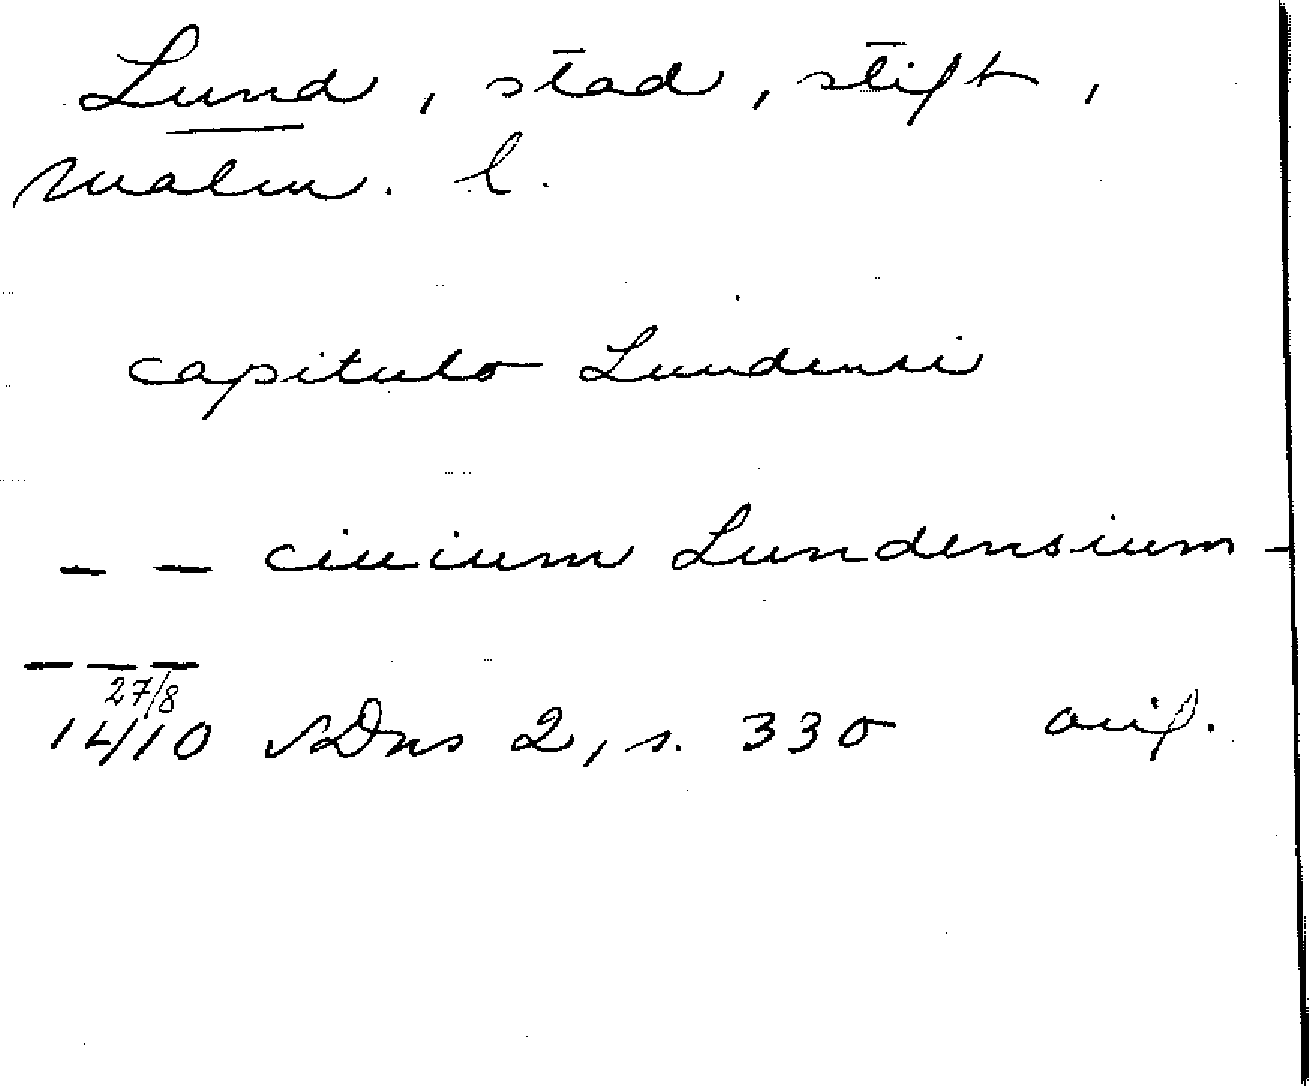 Lund, stad, stift,
Malm. l.
capitulo Lundensi
– – ciuium Lundensium –
– – –
27/8
1410 SDns 2, s. 330 avs.